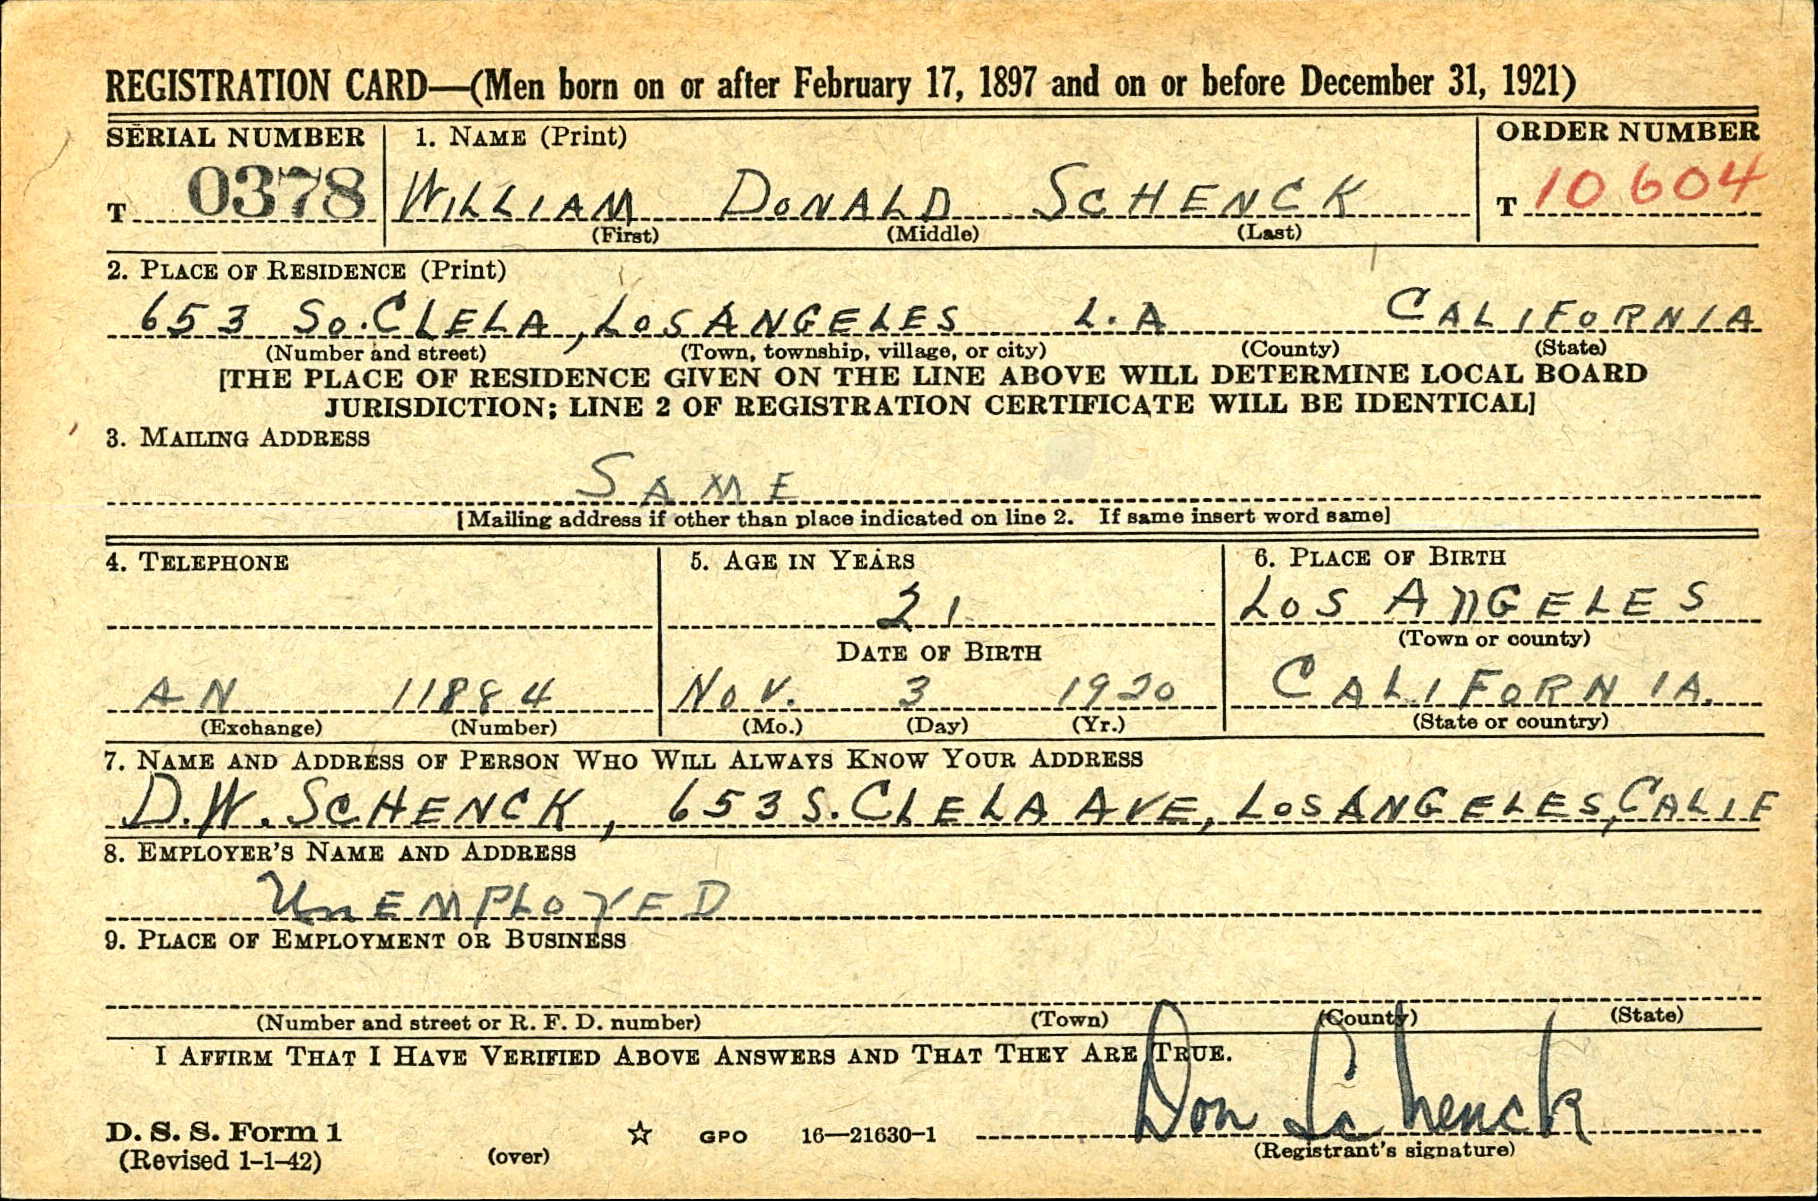 REGISTRATION CARD—(Men born on or after February 17, 1897 and on or before December 31, 1921)
SERIAL NUMBER 1. NAME (Print) ORDER NUMBER
T 0378 WILLIAM DONALD SCHENCK T 10604
(First) (Middle) (Last)
2. PLACE OF RESIDENCE (Print)
653 So. CLELA, LOS ANGELES L.A CALIFORNIA
(Number and street) (Town, township, village, or city) (County) (State)
[THE PLACE OF RESIDENCE GIVEN ON THE LINE ABOVE WILL DETERMINE LOCAL BOARD
JURISDICTION; LINE 2 OF REGISTRATION CERTIFICATE WILL BE IDENTICAL]
3. MAILING ADDRESS
SAME
[Mailing address if other than place indicated on line 2. If same insert word same]
4. TELEPHONE 5. AGE IN YEARS 6. PLACE OF BIRTH
21 LOS ANGELES
DATE OF BIRTH (Town or county)
AN 11884 NOV. 3 1920 CALIFORNIA.
(Exchange) (Number) (Mo.) (Day) (Yr.) (State or country)
7. NAME AND ADDRESS OF PERSON WHO WILL ALWAYS KNOW YOUR ADDRESS
D.W. SCHENCK, 653 S. CLELA AVE, LOS ANGELES, CALIF
8. EMPLOYER'S NAME AND ADDRESS
UnEMPLOYED
9. PLACE OF EMPLOYMENT OR BUSINESS
(Number and street or R. F. D. number) (Town) (County) (State)
I AFFIRM THAT I HAVE VERIFIED ABOVE ANSWERS AND THAT THEY ARE TRUE.
Don Schenck
D. S. S. Form 1 GPO 16—21630-1 (Registrant's signature)
(Revised 1-1-42) (over)